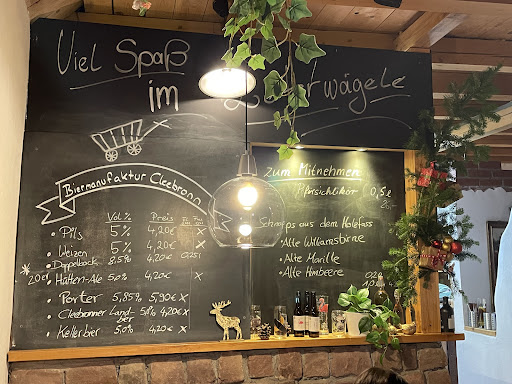 Viel Spaß
im
wägele
Biermanufaktur Cleebronn
Vol% Preis
• Pils 5% 4,20€ x
• Weizen 5% 4,20€ x
• Doppelbock 8,5% 4,20€ 0,25l
• Hütten-Ale 5,0% 4,20€ x
• Porter 5,85% 5,90€ x
• Cleebronner Land- 5,8% 4,20€ x
bier
• Kellerbier 5,0% 4,20€ x
Zum Mitnehmen
Pfirsichlikör 0,5l
Schnaps aus dem Holzfass
• Alte Williamsbirne
• Alte Marille
• Alte Himbeere